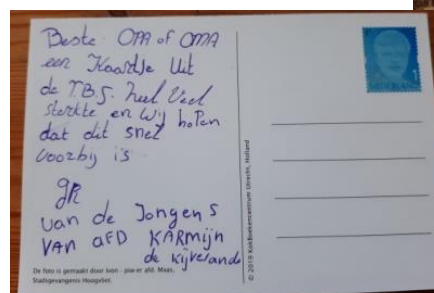 Beste OPA of OMA
een Kaartje Uit
de T.B.S. heel Veel
sterkte en Wij hopen
dat dit snel
voorbij is
gr
van de Jongens
VAN AFD KARMijn
de Kijvelanden
De foto is gemaakt door Ivon - piw-er afd. Maas.
Stadsgevangenis Hoogvliet.
© 2019 KokBoekencentrum Utrecht, Holland
NEDERLAND
1